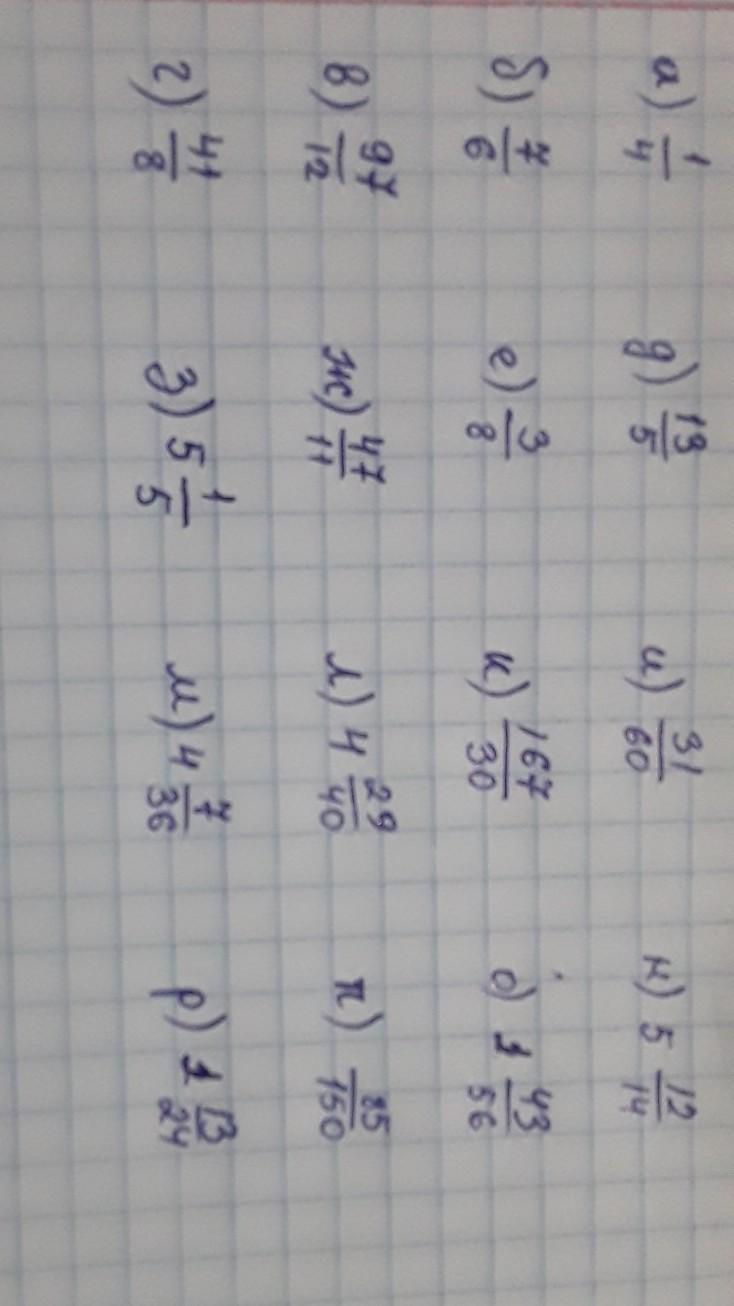 а) 1/4 д) 13/5 и) 31/60 н) 5 12/14
б) 7/6 е) 3/8 к) 167/30 о) 1 43/56
в) 97/12 ж) 47/11 л) 4 29/40 п) /150
г) 41/8 з) 5 1/5 м) 4 7/36 р) 1 13/24